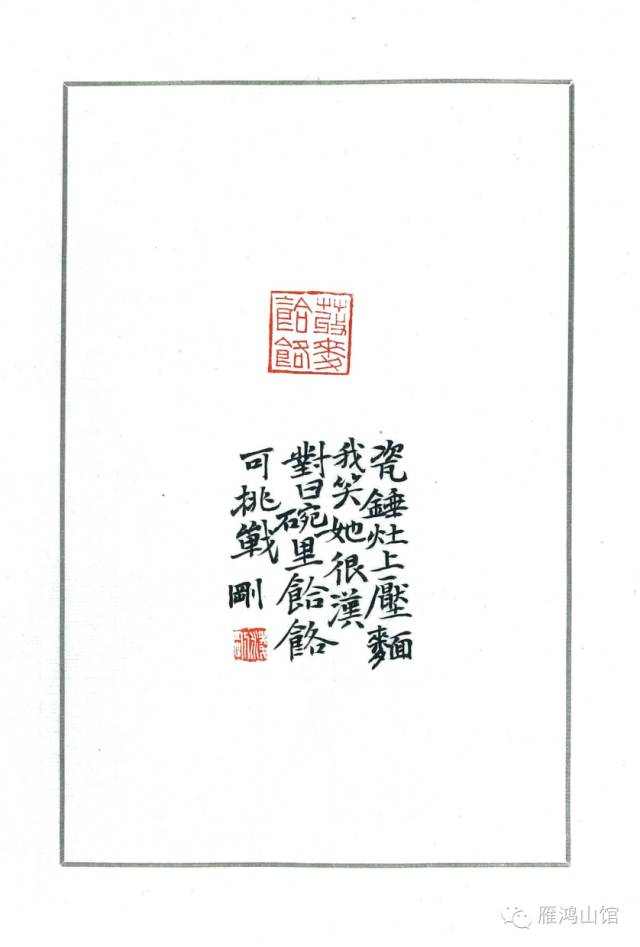 荍麥
餄餎
瓷錘灶上壓麵
我笑她很漢
對曰碗里餄餎
可挑戰 剛
雁鸿山馆